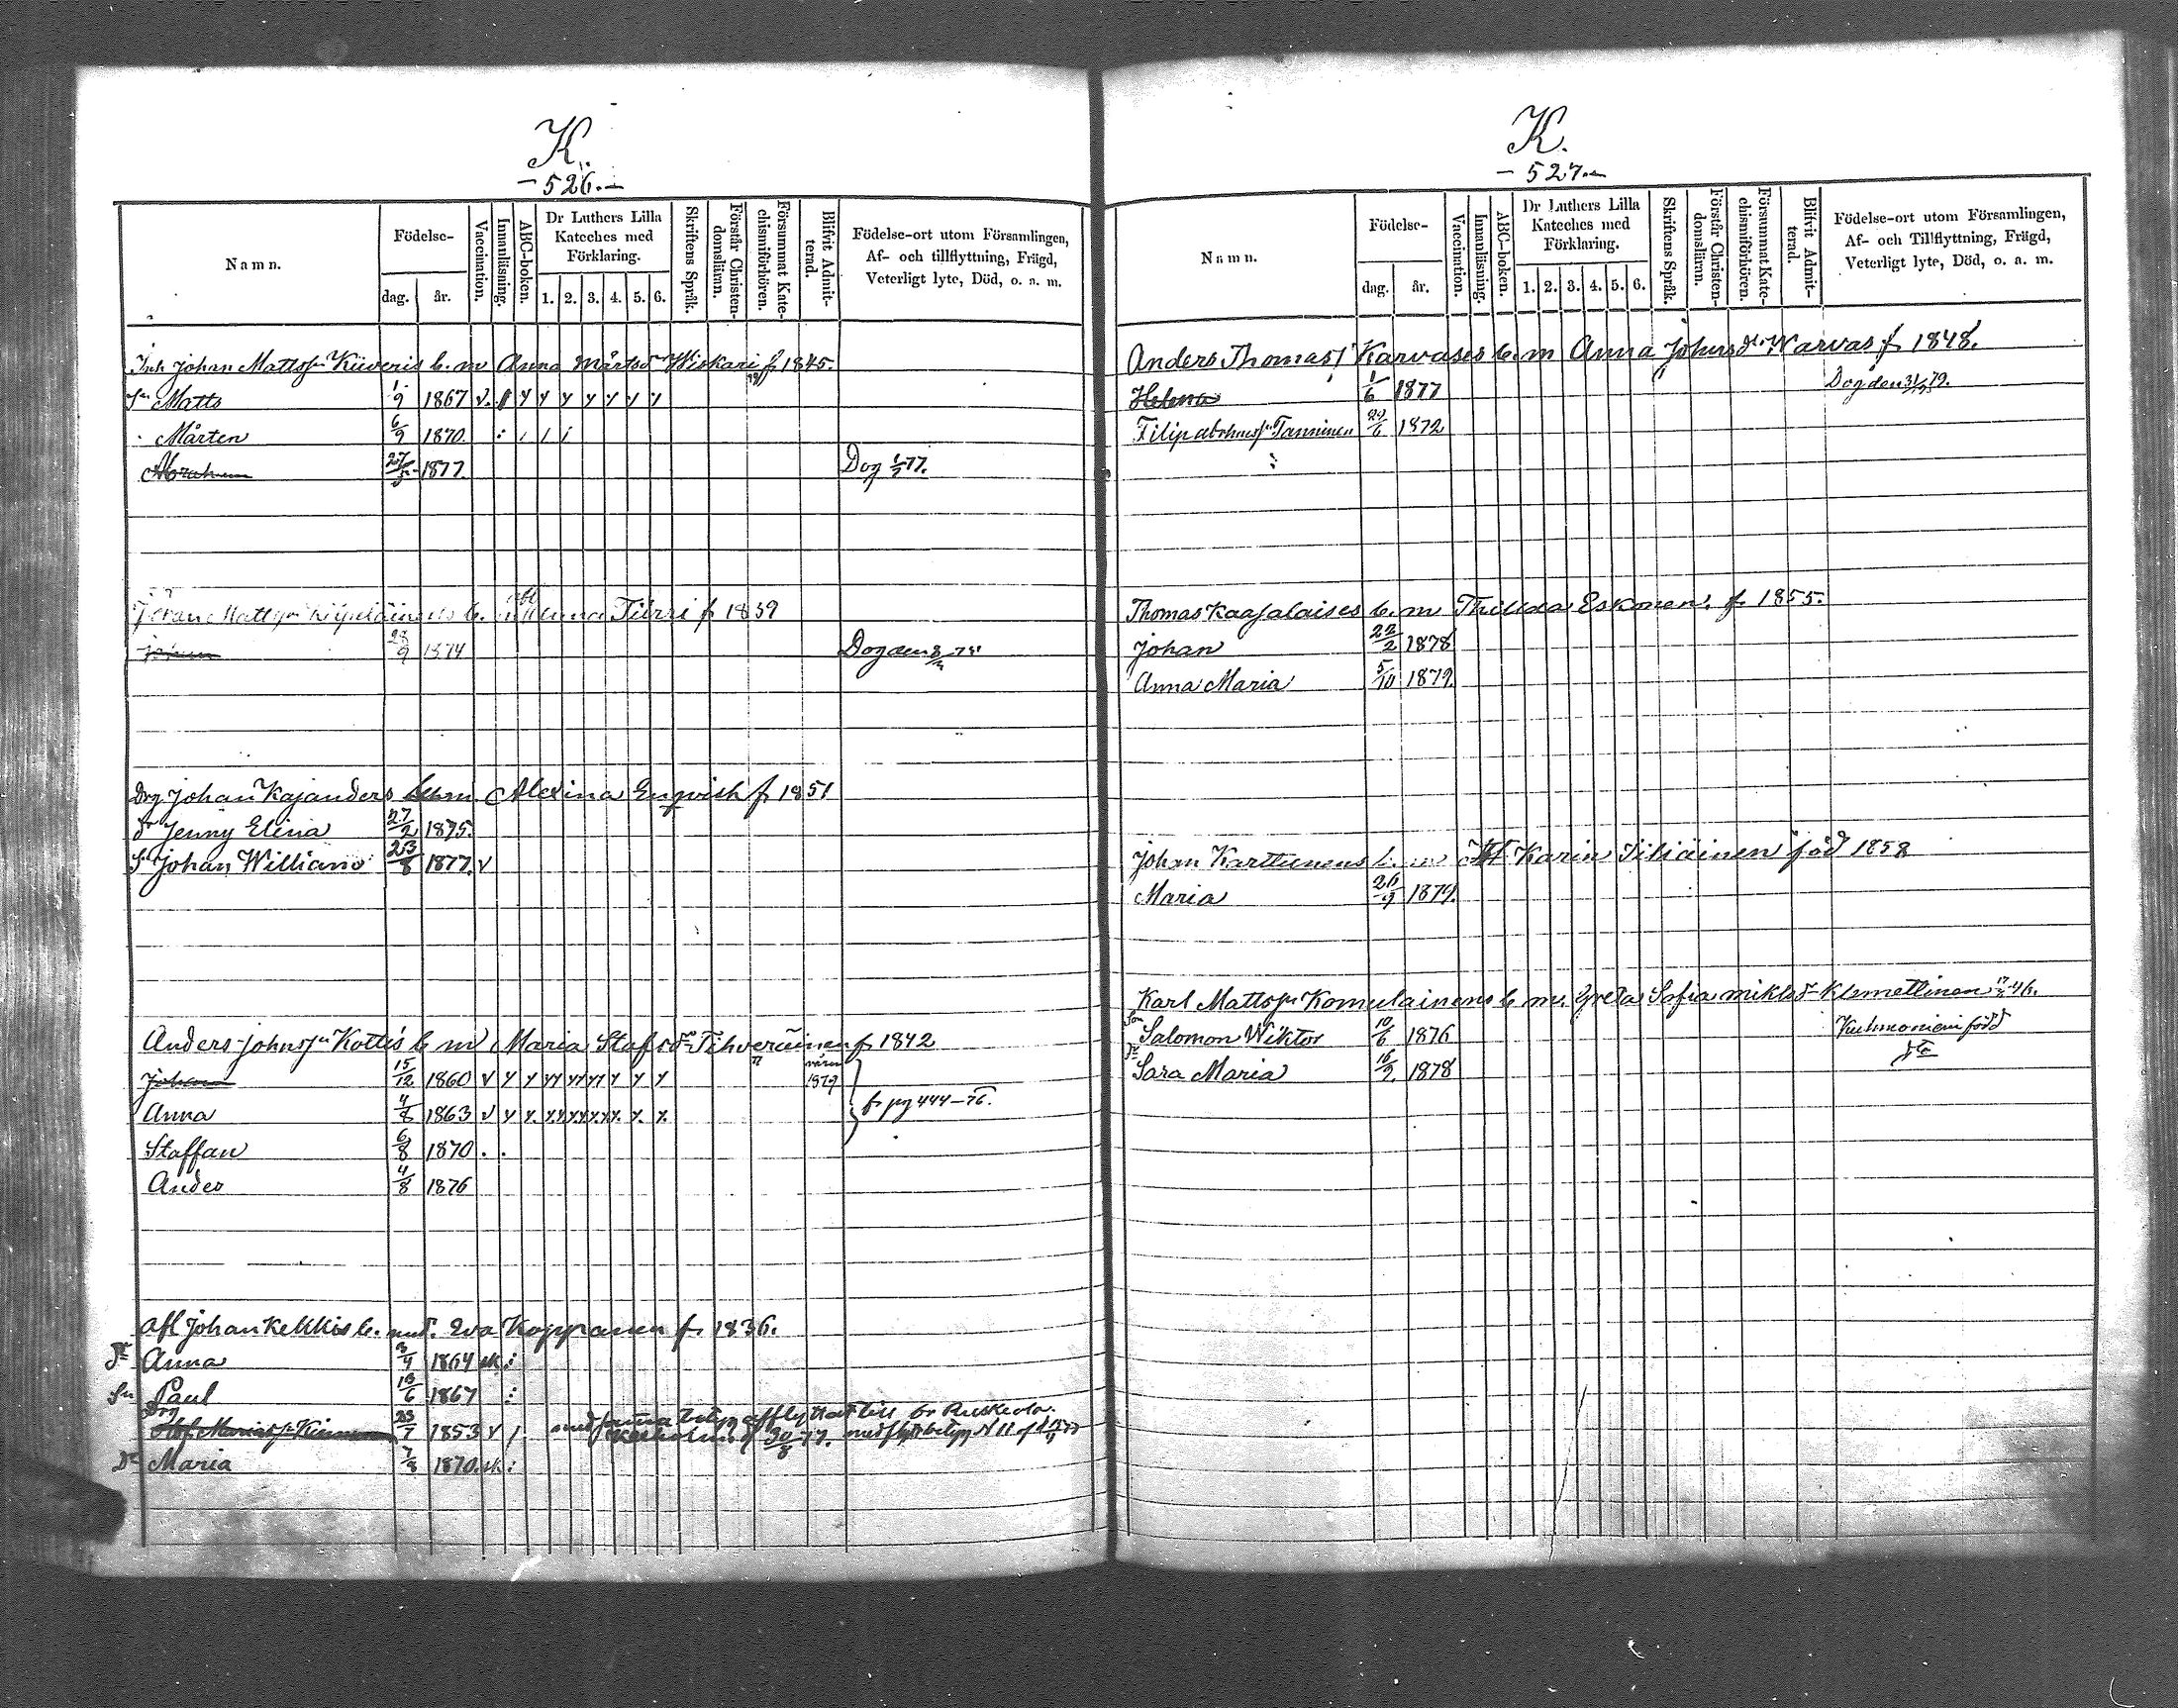 K.
- 526. -
Namn.
Födelse-
dag. år.
Vaccination.
Innanläsning.
ABC-boken.
Dr Luthers Lilla Kateches med Förklaring.
1. 2. 3. 4. 5. 6.
Skriftens Språk.
Förstår Christendomsläran.
Försummat Katechismiförhören.
Blifvit Admitterad.
Födelse-ort utom Församlingen,
Af- och tillflyttning, Frägd,
Veterligt lyte, Död, o. a. m.
Inh Johan Mattsn Kiiveris b. m Anna Mårtsdr Wiskari f 1845.
Sn Matts 1/9 1867 v.
Mårten 6/9 1870.
Abraham 27/5 1877. Dog 1/7 77.
Johan Mattsn b. m Türri f 1839
Johan 28/9 1874 Dog den
Drg Johan Kajanders b. m. Alexina Enqvish f 1851
dr Jenny Elina 27/2 1875.
Sn Johan William 23/8 1877. v
Anders Johnsn Kottis b m Maria Stafsdr f 1842
Johan 15/12 1860 v 1879
Anna 4/8 1863 v fr pg 444-76.
Staffan 6/8 1870
Anders 4/8 1876
Afl Johan Kekkis b. med. Eva Koppanen f. 1836.
Dr Anna 3/4 1864
Sn Paul 13/6 1867
Drg 23/7 1853 v afflyttat till
30/8 77.
Dr Maria 7/8 1870.
K.
- 527. -
Namn.
Födelse-
dag. år.
Vaccination.
Innanläsning.
ABC-boken.
Dr Luthers Lilla Kateches med Förklaring.
1. 2. 3. 4. 5. 6.
Skriftens Språk.
Förstår Christendomsläran.
Försummat Katechismiförhören.
Blifvit Admitterad.
Födelse-ort utom Församlingen,
Af- och Tillflyttning, Frägd,
Veterligt lyte, Död, o. a. m.
Anders Thomass Karvases b. m Anna Johnsdr Warvas f 1848.
Helena 1/6 1877 Dog den 79.
Filip Tanninen 1872
Thomas Kaajalaises b. m Thilda Eskonen. f. 1855.
Johan 22/2 1878
Anna Maria 5/10 1879.
Johan Karttunens b. m Karin född 1858
Maria 26/9 1879.
Karl Mattsn Komulainens b m. Greta Sofia Miklsdr Klemettinen 46.
Son Salomon Wiktor 10/6 1876 Kuhmoniemi född
Dr Sara Maria 16/9 1878